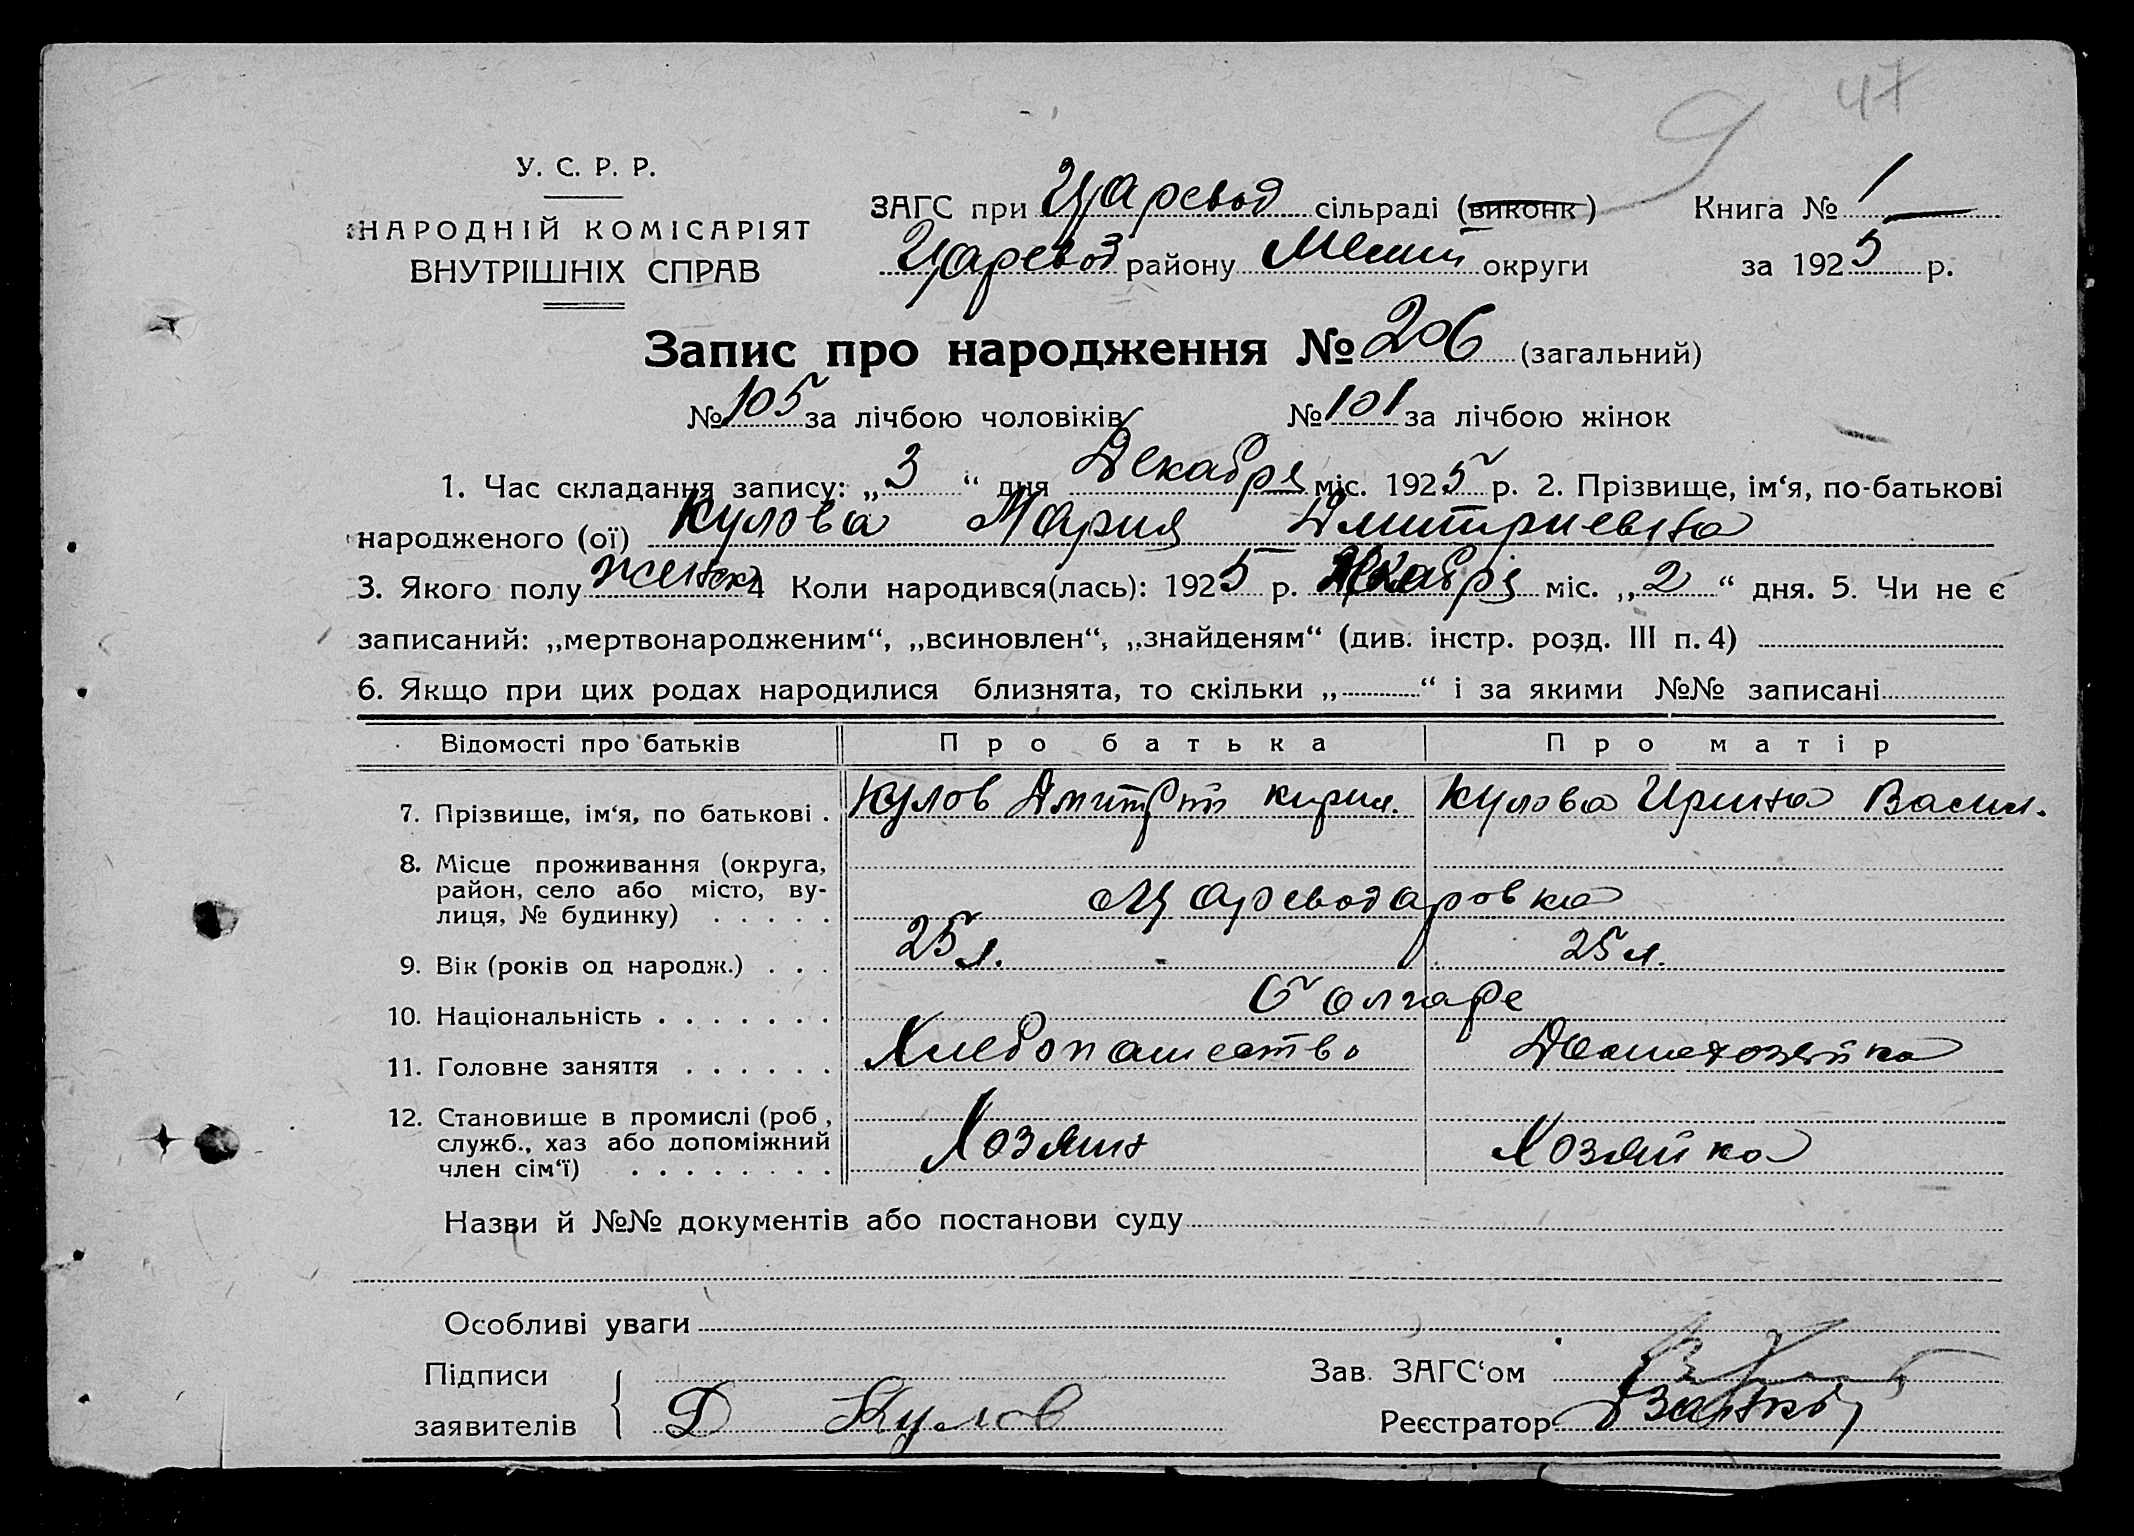 47
У. С. Р. Р.
НАРОДНІЙ КОМІСАРІЯТ
ВНУТРІШНІХ СПРАВ
ЗАГС при Царевод сільраді (виконк) Книга № 1
Царевод району Мелит округи за 1925 р.
Запис про народження № 206 (загальний)
№ 105 за лічбою чоловіків № 101 за лічбою жінок
1. Час складання запису: „3“ дня Декабря міс. 1925 р. 2. Прізвище, ім‘я, по-батькові
народженого (ої) Кулова Мария Дмитриевна
3. Якого полу женск 4 Коли народився(лась): 1925 р. Декабря міс. „2“ дня. 5. Чи не є
записаний: „мертвонародженим“, „всиновлен“, „знайденям“ (див. інстр. розд. III п. 4)
6. Якщо при цих родах народилися близнята, то скільки „ “ і за якими №№ записані
Відомості про батьків Про батька Про матір
7. Прізвище, ім‘я, по батькові . Кулов Дмитрий Кирил. Кулова Ирина Васил.
8. Місце проживання (округа,
район, село або місто, ву-
лиця, № будинку) . . . . . Цареводаровка
9. Вік (років од народж.) . . . 25 л. 25 л.
10. Національність . . . . . . . болгаре
11. Головне заняття . . . . . . Хлебопашество Домохозяйка
12. Становище в промислі (роб,
служб., хаз або допоміжний
член сім‘ї) . . . . . . . . Хозяин Хозяйка
Назви й №№ документів або постанови суду
Особливі уваги
Підписи Зав. ЗАГС‘ом
заявителів Д Кулов Реєстратор